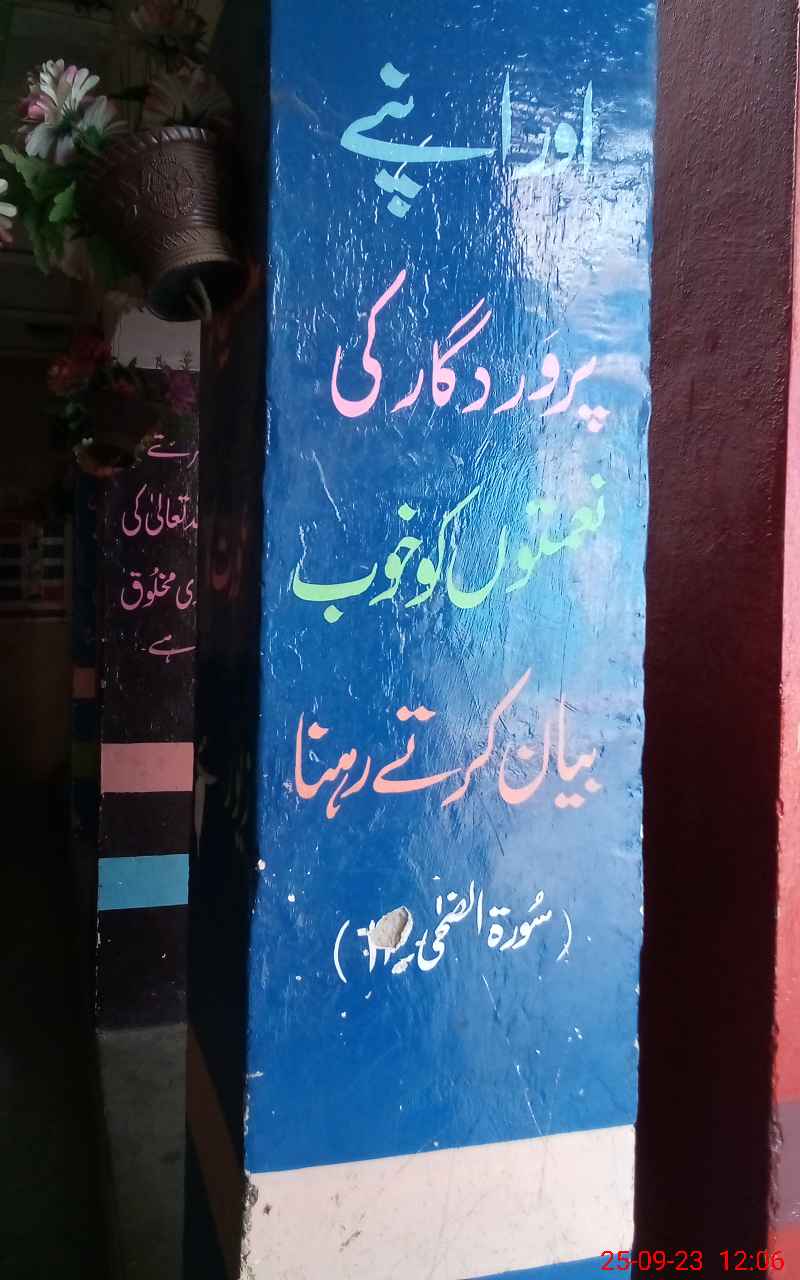 اور اپنے
پروَردگار کی
نعمتوں کو خوب
بیان کرتے رہنا
(سُورۃ الضحٰی۔ ۱۱)
تعالیٰ کی
مخلُوق
ہے
25-09-23 12:06